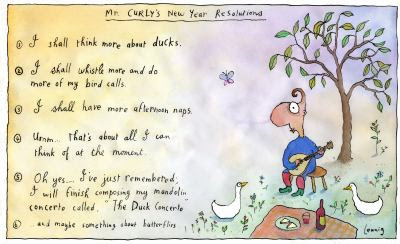 Mr CURLY'S NEW YEAR RESOLUTIONS
1 I shall think more about ducks.
2 I shall whistle more and do
more of my bird calls.
3 I shall have more afternoon naps.
4 Umm... That's about all I can
think of at the moment.
5 Oh yes... I've just remembered;
I will finish composing my mandolin
concerto called, "The Duck Concerto"
6 ..and maybe something about butterflies
Leunig